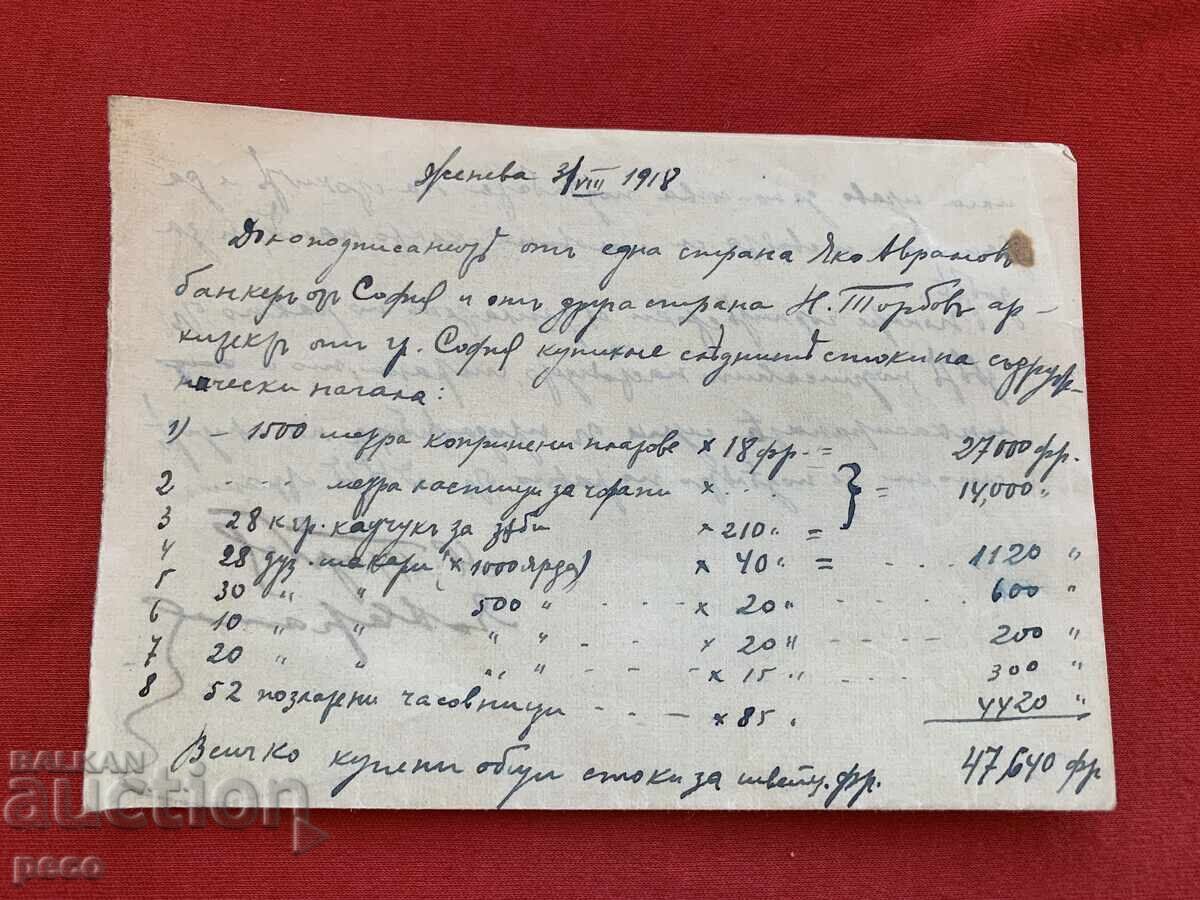 Женева 3/VIII 1918
Долоподписанитѣ отъ една страна Яко Аврамовъ
банкеръ отъ София и отъ друга страна Н. Торбовъ ар-
хитектъ отъ гр. София купихме слѣднитѣ стоки на съдруж-
нически начала:
1) - 1500 метра копринени платове × 18 фр. = 27000 фр.
2 ---- метра ластици за чорапи × .... } = 14,000 "
3 28 кгр. каучукъ за зѫби × 210 " =
4 28 дуз. макари (× 1000 ярда) × 40 " = ---- 1120 "
5 30 " " 500 " --- × 20 " ---- 600 "
6 10 " " " " --- × 20 " ---- 200 "
7 20 " " " " --- × 15 " ---- 300 "
8 52 позлатени часовници --- × 85 " 4420 "
Всичко купени общи стоки за швейц. фр. 47,640 фр
BALKAN
auction
peco